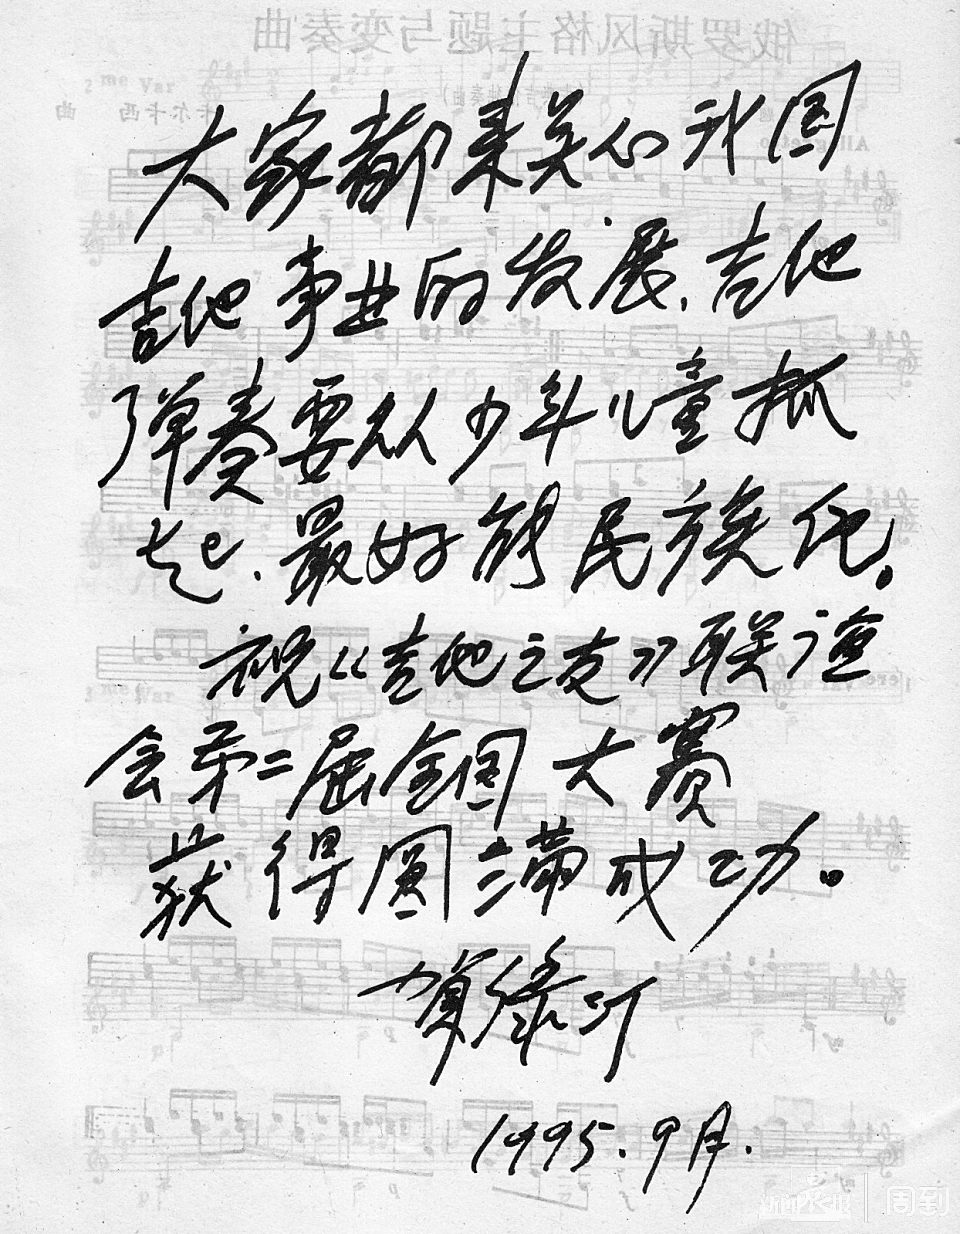 大家都来关心我国
吉他事业的发展、吉他
弹奏要从少年儿童抓
起、最好能民族化。
祝《吉他之友》联谊
会第二届全国大赛
获得圆满成功。
贺绿汀
1995.9月.
俄罗斯风格主题与变奏曲
卡尔卡西 曲
2me Var
新闻晨报 | 周到